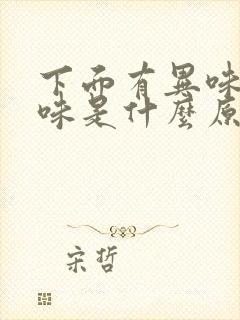 下面有異味
味是什麼原
宋哲